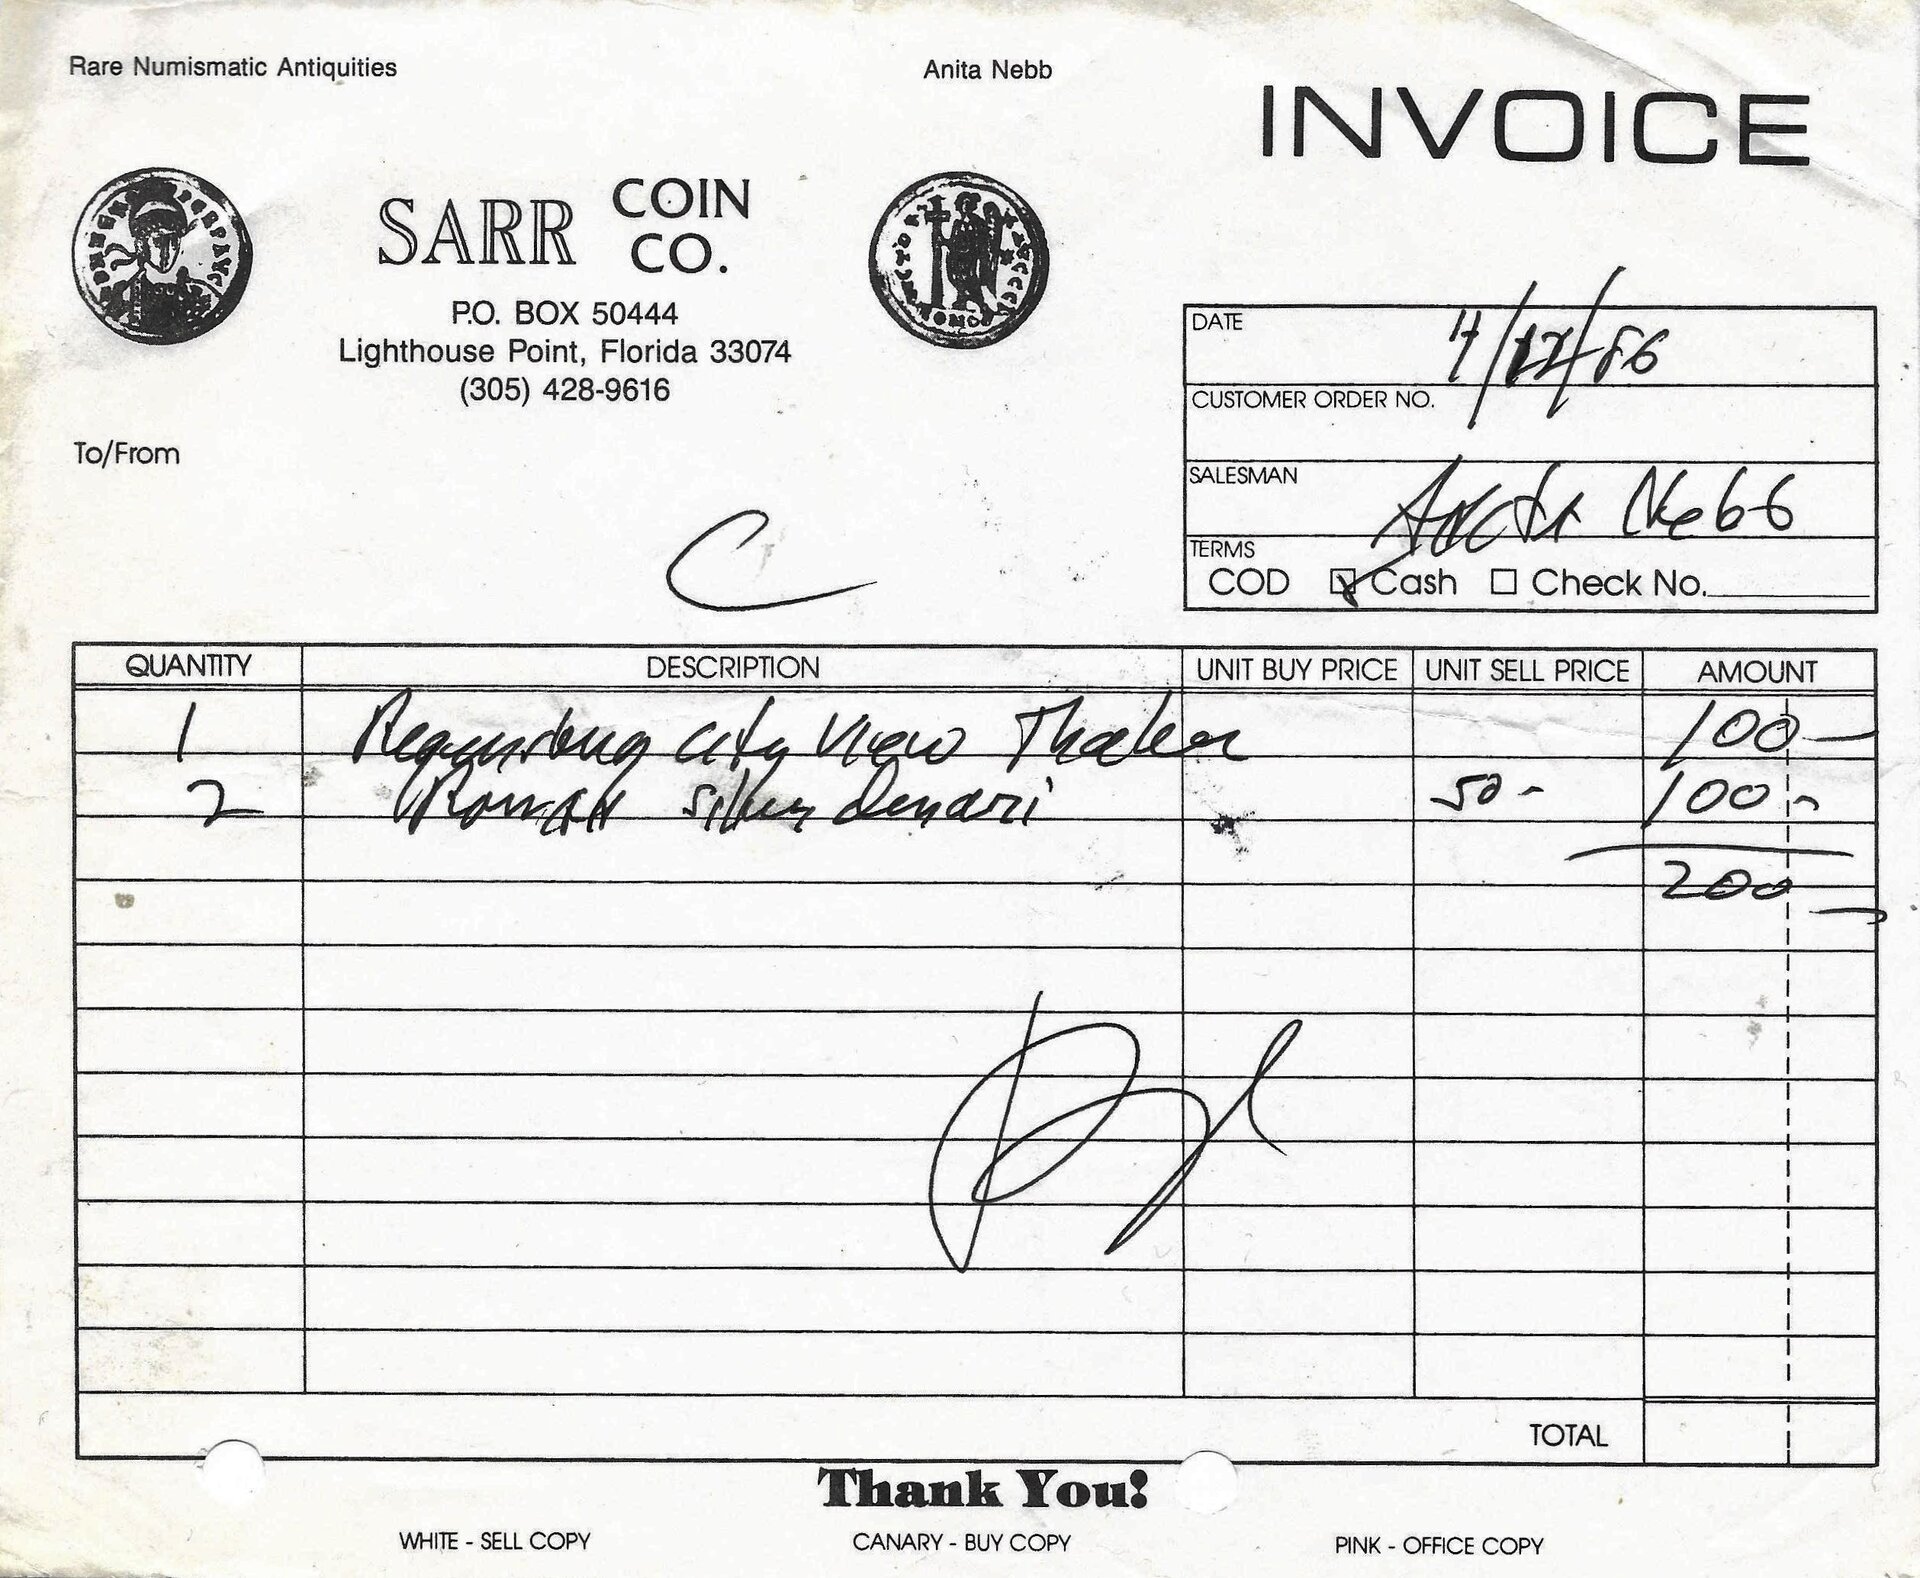 Rare Numismatic Antiquities
Anita Nebb
INVOICE
SARR COIN CO.
P.O. BOX 50444
Lighthouse Point, Florida 33074
(305) 428-9616
To/From
C
DATE 4/12/86
CUSTOMER ORDER NO.
SALESMAN Anita Nebb
TERMS
COD Cash Check No.
QUANTITY DESCRIPTION UNIT BUY PRICE UNIT SELL PRICE AMOUNT
1 city View Thaler 100-
2 Roman silver Denari 50- 100-
200-
TOTAL
Thank You!
WHITE - SELL COPY CANARY - BUY COPY PINK - OFFICE COPY